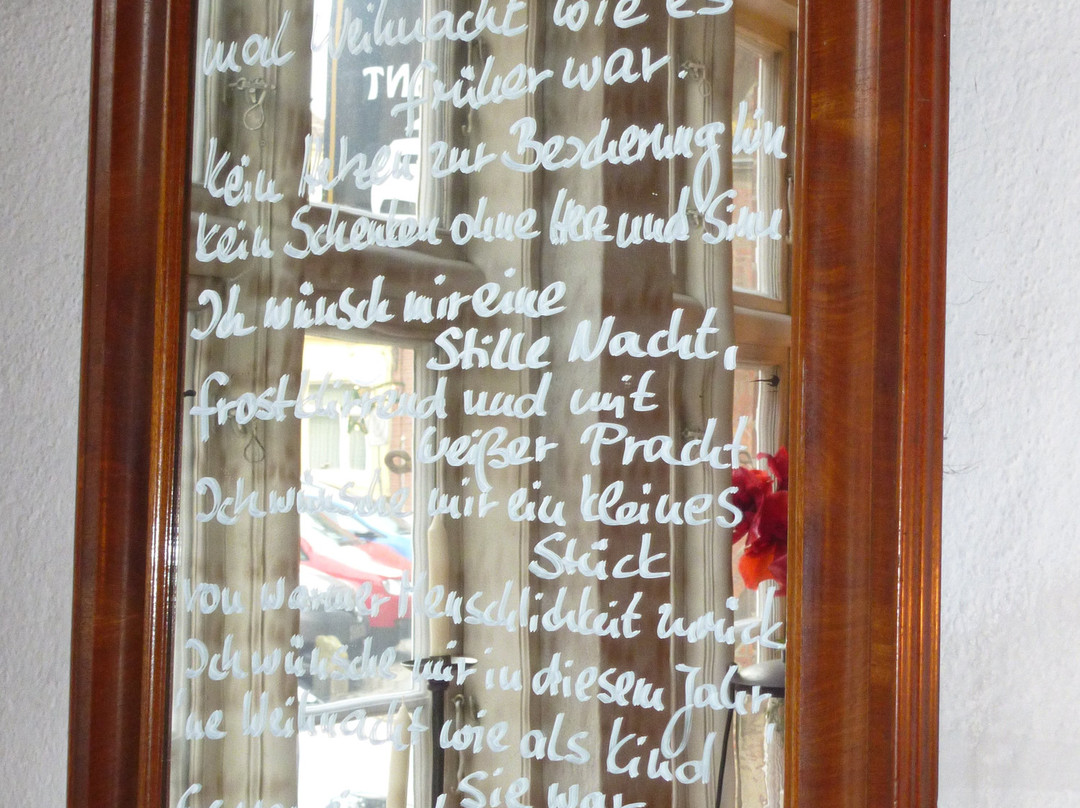 mal Weihnacht wie es
früher war.
Kein Hetzen zur Bescherung hin
kein Schenken ohne Herz und Sinn
Ich wünsch mir eine
Stille Nacht,
frostklirrend und mit
weißer Pracht
Ich wünsche mir ein kleines
Stück
von warmer Menschlichkeit zurück
Ich wünsche mir in diesem Jahr
ne Weihnacht wie als Kind
Sie war